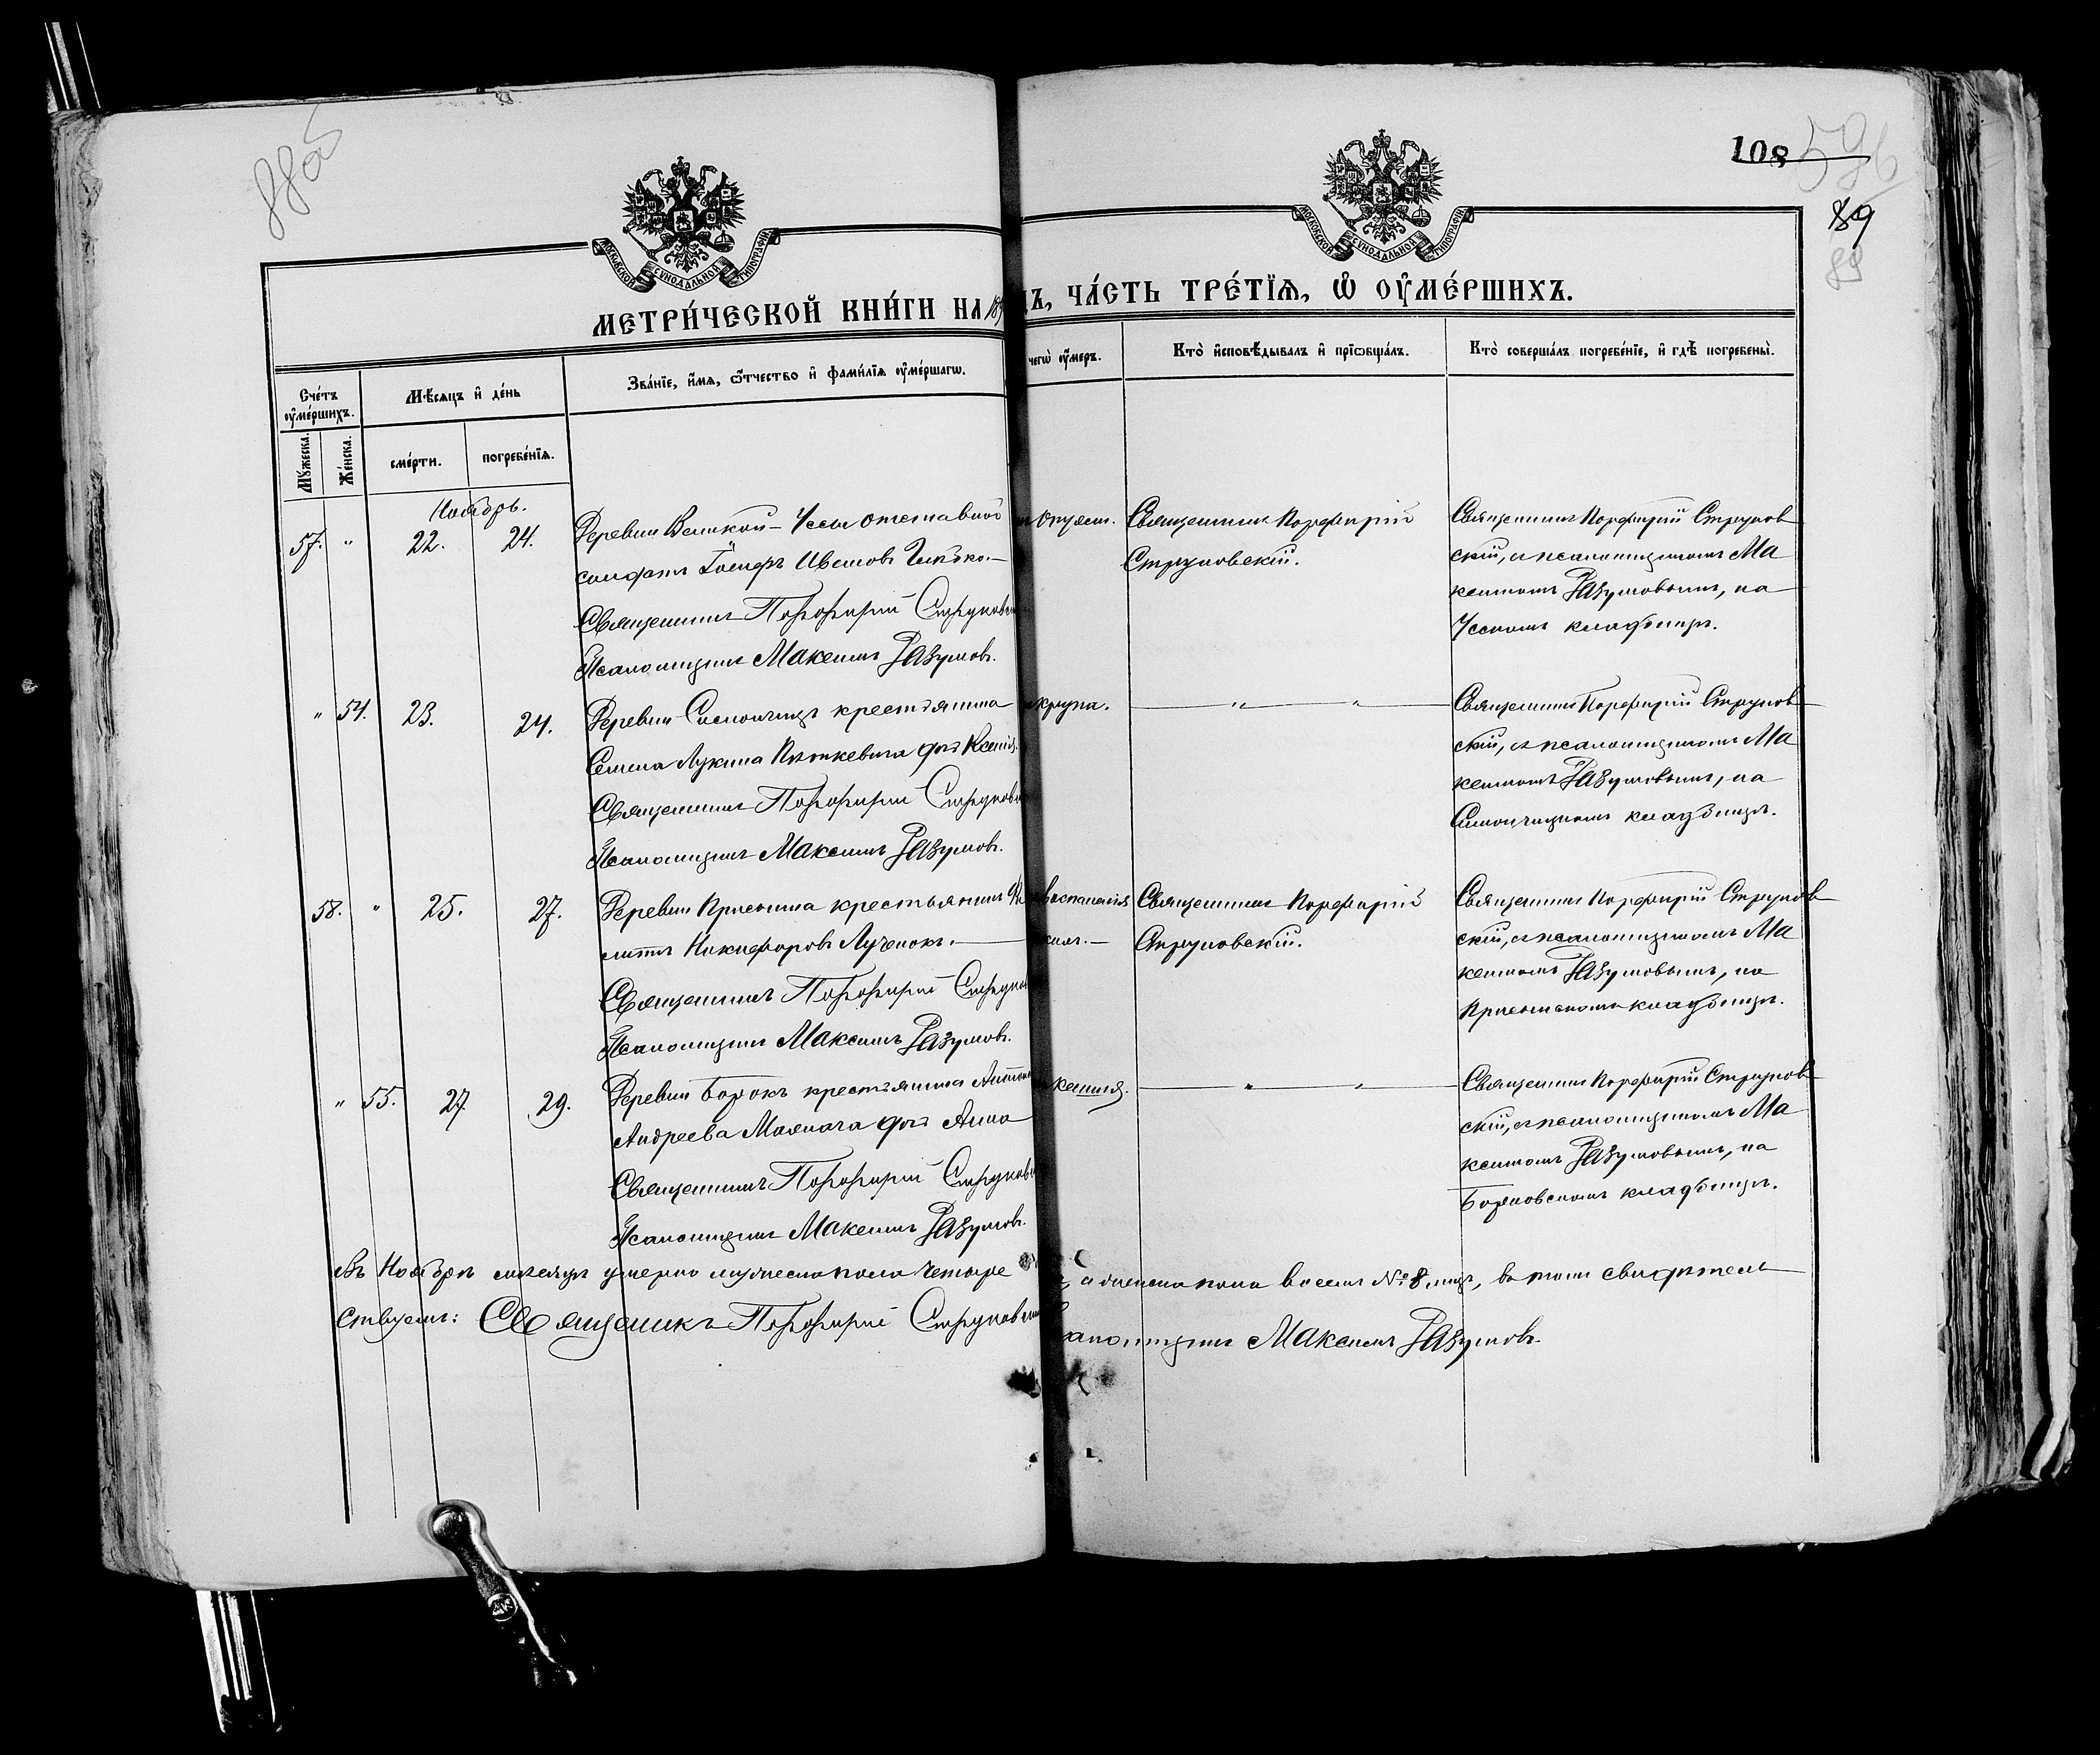 88 об
108
89
МОСКОВСКОЙ СУНОДАЛЬНОЙ ТИПОГРАФІИ
МОСКОВСКОЙ СУНОДАЛЬНОЙ ТИПОГРАФІИ
МЕТРИ́ЧЕСКОЙ КНИ́ГИ НА 189
ДЪ, ЧА́СТЬ ТРЕ́ТЇѦ, Ѡ҆ ОУ҆МЕ́РШИХЪ.
Сче́тъ оу҆ме́ршихъ.
Мꙋ́жеска.
Же́нска.
Мѣ́сяцъ и҆ де́нь
сме́рти.
погребе́нїѧ.
Зва́нїе, и҆́мѧ, ѻ҆́тчество и҆ фами́лїѧ оу҆ме́ршагѡ.
чегѡ̀ оу҆́меръ.
Кто̀ и҆сповѣ́дывалъ и҆ прїѡбща́лъ.
Кто̀ соверша́лъ погребе́нїе, и҆ гдѣ̀ погребены̀.
Ноябрь.
57. " 22. 24.
Деревни Великой-Уссы отставной
солдатъ Іосифъ Ивановъ
Священникъ Порфирій Струковск
Псаломщикъ Максимъ Разумовъ.
Священникъ Порфирій
Струковскій.
Священникъ Порфирій Струков
скій, съ псаломщикомъ Ма
ксимомъ Разумовымъ, на
Усскомъ кладбищѣ.
" 54. 23. 24.
Деревни крестьянина
Семена Лукина дочь Ксенія.
Священникъ Порфирій Струковск
Псаломщикъ Максимъ Разумовъ.
крупа.
" "
Священникъ Порфирій Струков
скій, съ псаломщикомъ Ма
ксимомъ Разумовымъ, на
кладбищѣ.
58. " 25. 27.
Деревни крестьянинъ
Никифоровъ Лученокъ.
Священникъ Порфирій Струков
Псаломщикъ Максимъ Разумовъ.
воспаленія
Священникъ Порфирій
Струковскій.
Священникъ Порфирій Струков
скій, съ псаломщикомъ Ма
ксимомъ Разумовымъ, на
кладбищѣ.
" 55. 27 29.
Деревни Борокъ крестьянина Антона
Андреева дочь Анна
Священникъ Порфирій Струковск
Псаломщикъ Максимъ Разумовъ.
кашля.
" "
Священникъ Порфирій Струков
скій, съ псаломщикомъ Ма
ксимомъ Разумовымъ, на
Борковскомъ кладбищѣ.
Въ Ноябрѣ мѣсяцѣ умерло мужеска пола четыре
а женска пола восемь № 8 лицъ, въ томъ свидѣтель
ствуемъ: Священникъ Порфирій Струковскі
саломщикъ Максимъ Разумовъ.